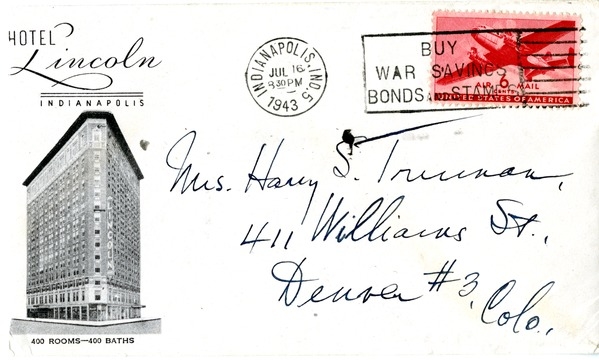 HOTEL
Lincoln
INDIANAPOLIS
INDIANAPOLIS, IND. 5
JUL 16
8 30 PM
1943
BUY
WAR SAVINGS
BONDS AND STAMPS
6
AIR MAIL
CENTS
UNITED STATES OF AMERICA
Mrs. Harry S. Truman,
411 Williams St.,
Denver #3,
Colo.
LINCOLN
400 ROOMS—400 BATHS